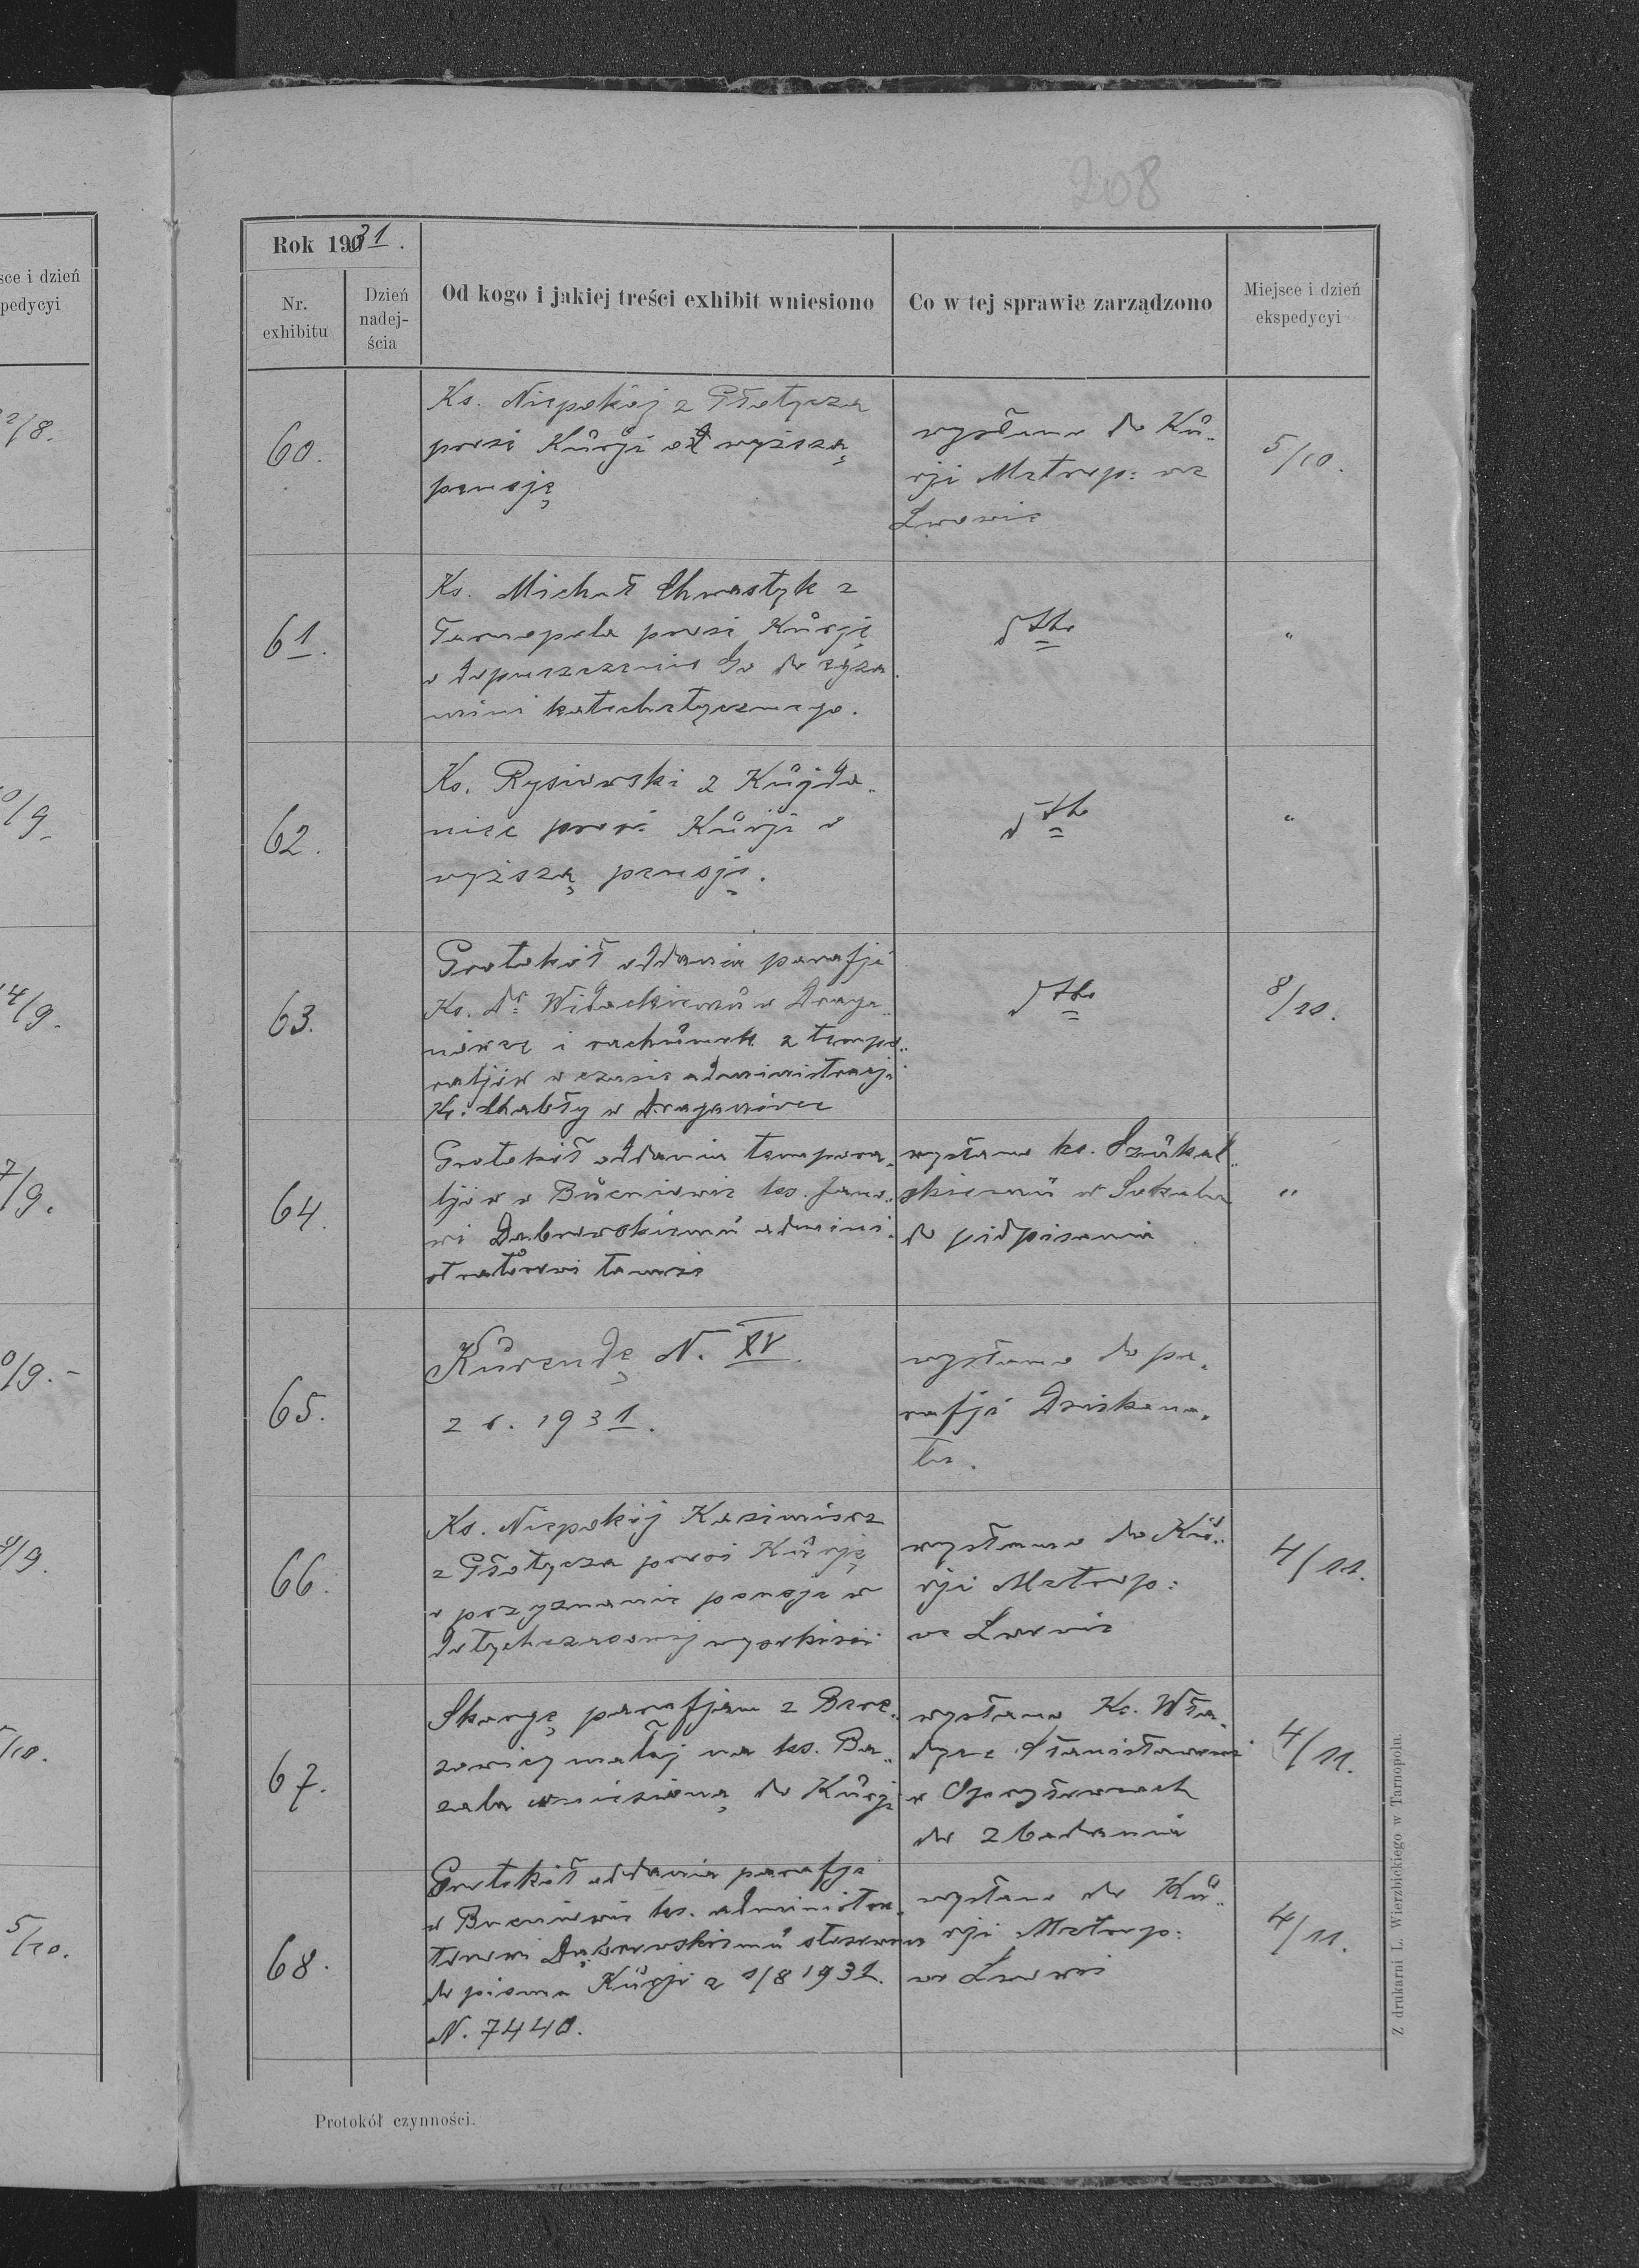 208
sce i dzień
pedycyi
2/8.
0/9.
14/9.
7/9.
0/9.-
9/9.
5/10.
5/10.
Rok 1931.
Nr.
exhibitu
Dzień
nadej-
ścia
Od kogo i jakiej treści exhibit wniesiono
Co w tej sprawie zarządzono
Miejsce i dzień
ekspedycyi
60.
Ks. Niepokój z Płotycza
prosi Kurji o wyższą
pensję
wysłano do Ku„
rji Metrop: we
Lwowie
5/10.
61.
Ks. Michał Chwastyk z
Tarnopola prosi Kurję
o dopuszczenie Go do egza„
minu katechetycznego.
dtto
"
62.
Ks. Rysiewski z Kujda„
niec prosi Kurji o
wyższą pensję.
dtto
"
63.
Protokół oddania parafji
Ks. Dr Widackiemu w Draga„
nówce i rachunek z tempo„
raljów w czasie administracji
Ks. Chabły w Draganówce
dtto
8/10.
64.
Protokół oddania tempora„
ljów w Bucniowie ks. Jano„
wi Dąbrowskiemu admini„
stratorowi tamże
wysłano ks. Szukal„
skiemu w
do podpisania
"
65.
Kurendę N. XV.
z r. 1931.
wysłano do pa„
rafji Dziekana„
tu.
66.
Ks. Niepokój Kazimierz
z Płotycza prosi Kurję
o przyznanie pensji w
dotychczasowej wysokości
wysłano do Ku„
rji Metrop:
we Lwowie
4/11.
67.
Skargę parafjan z Bere„
zowicy małej na ks. Ba„
zala wniesioną do Kurji
wysłano Ks. Wła„
dyce Stanisławowi
w
do zbadania
4/11.
68.
Protokół oddania parafji
w Bucniowie ks. administra„
torowi Dąbrowskiemu stosowno
do pisma Kurji z 1/8 1931.
N. 7440.
wysłano do Ku„
rji Metrop:
we Lwowie
4/11.
Protokół czynności.
Z drukarni L. Wierzbickiego w Tarnopolu.